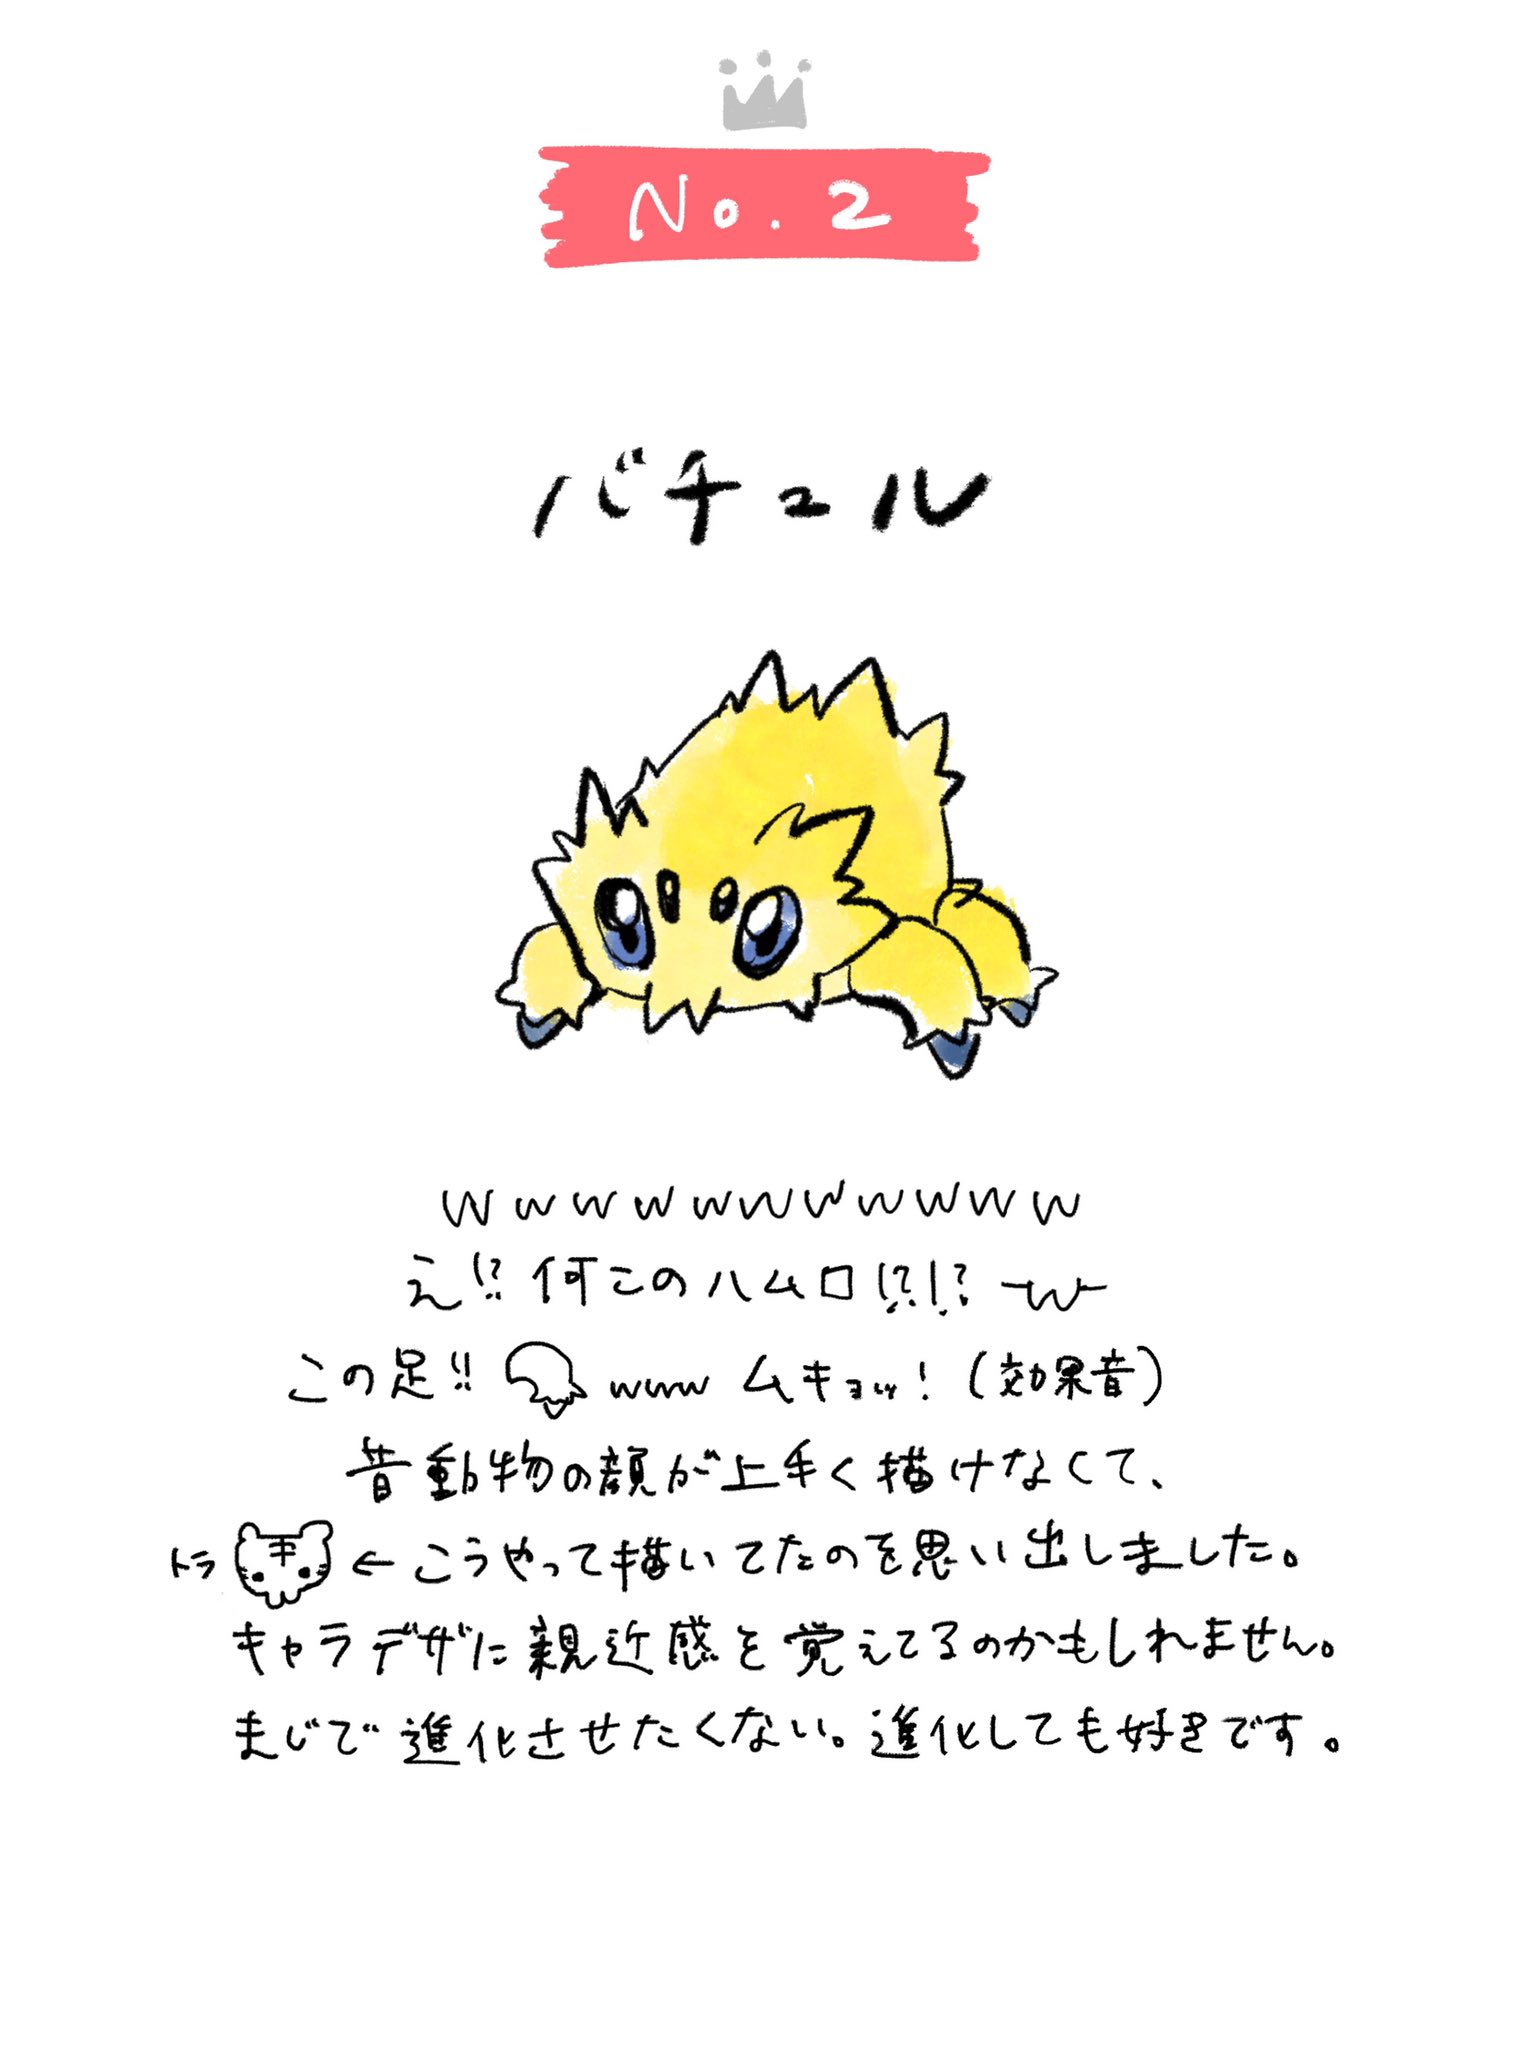 No. 2
バチュル
wwwwwwwwwww
え!?何このハムロ!?!? w
この足!! www ムキョッ!(効果音)
昔動物の顔が上手く描けなくて、
トラ ← こうやって描いてたのを思い出しました。
キャラデザに親近感を覚えてるのかもしれません。
まじで進化させたくない。進化しても好きです。